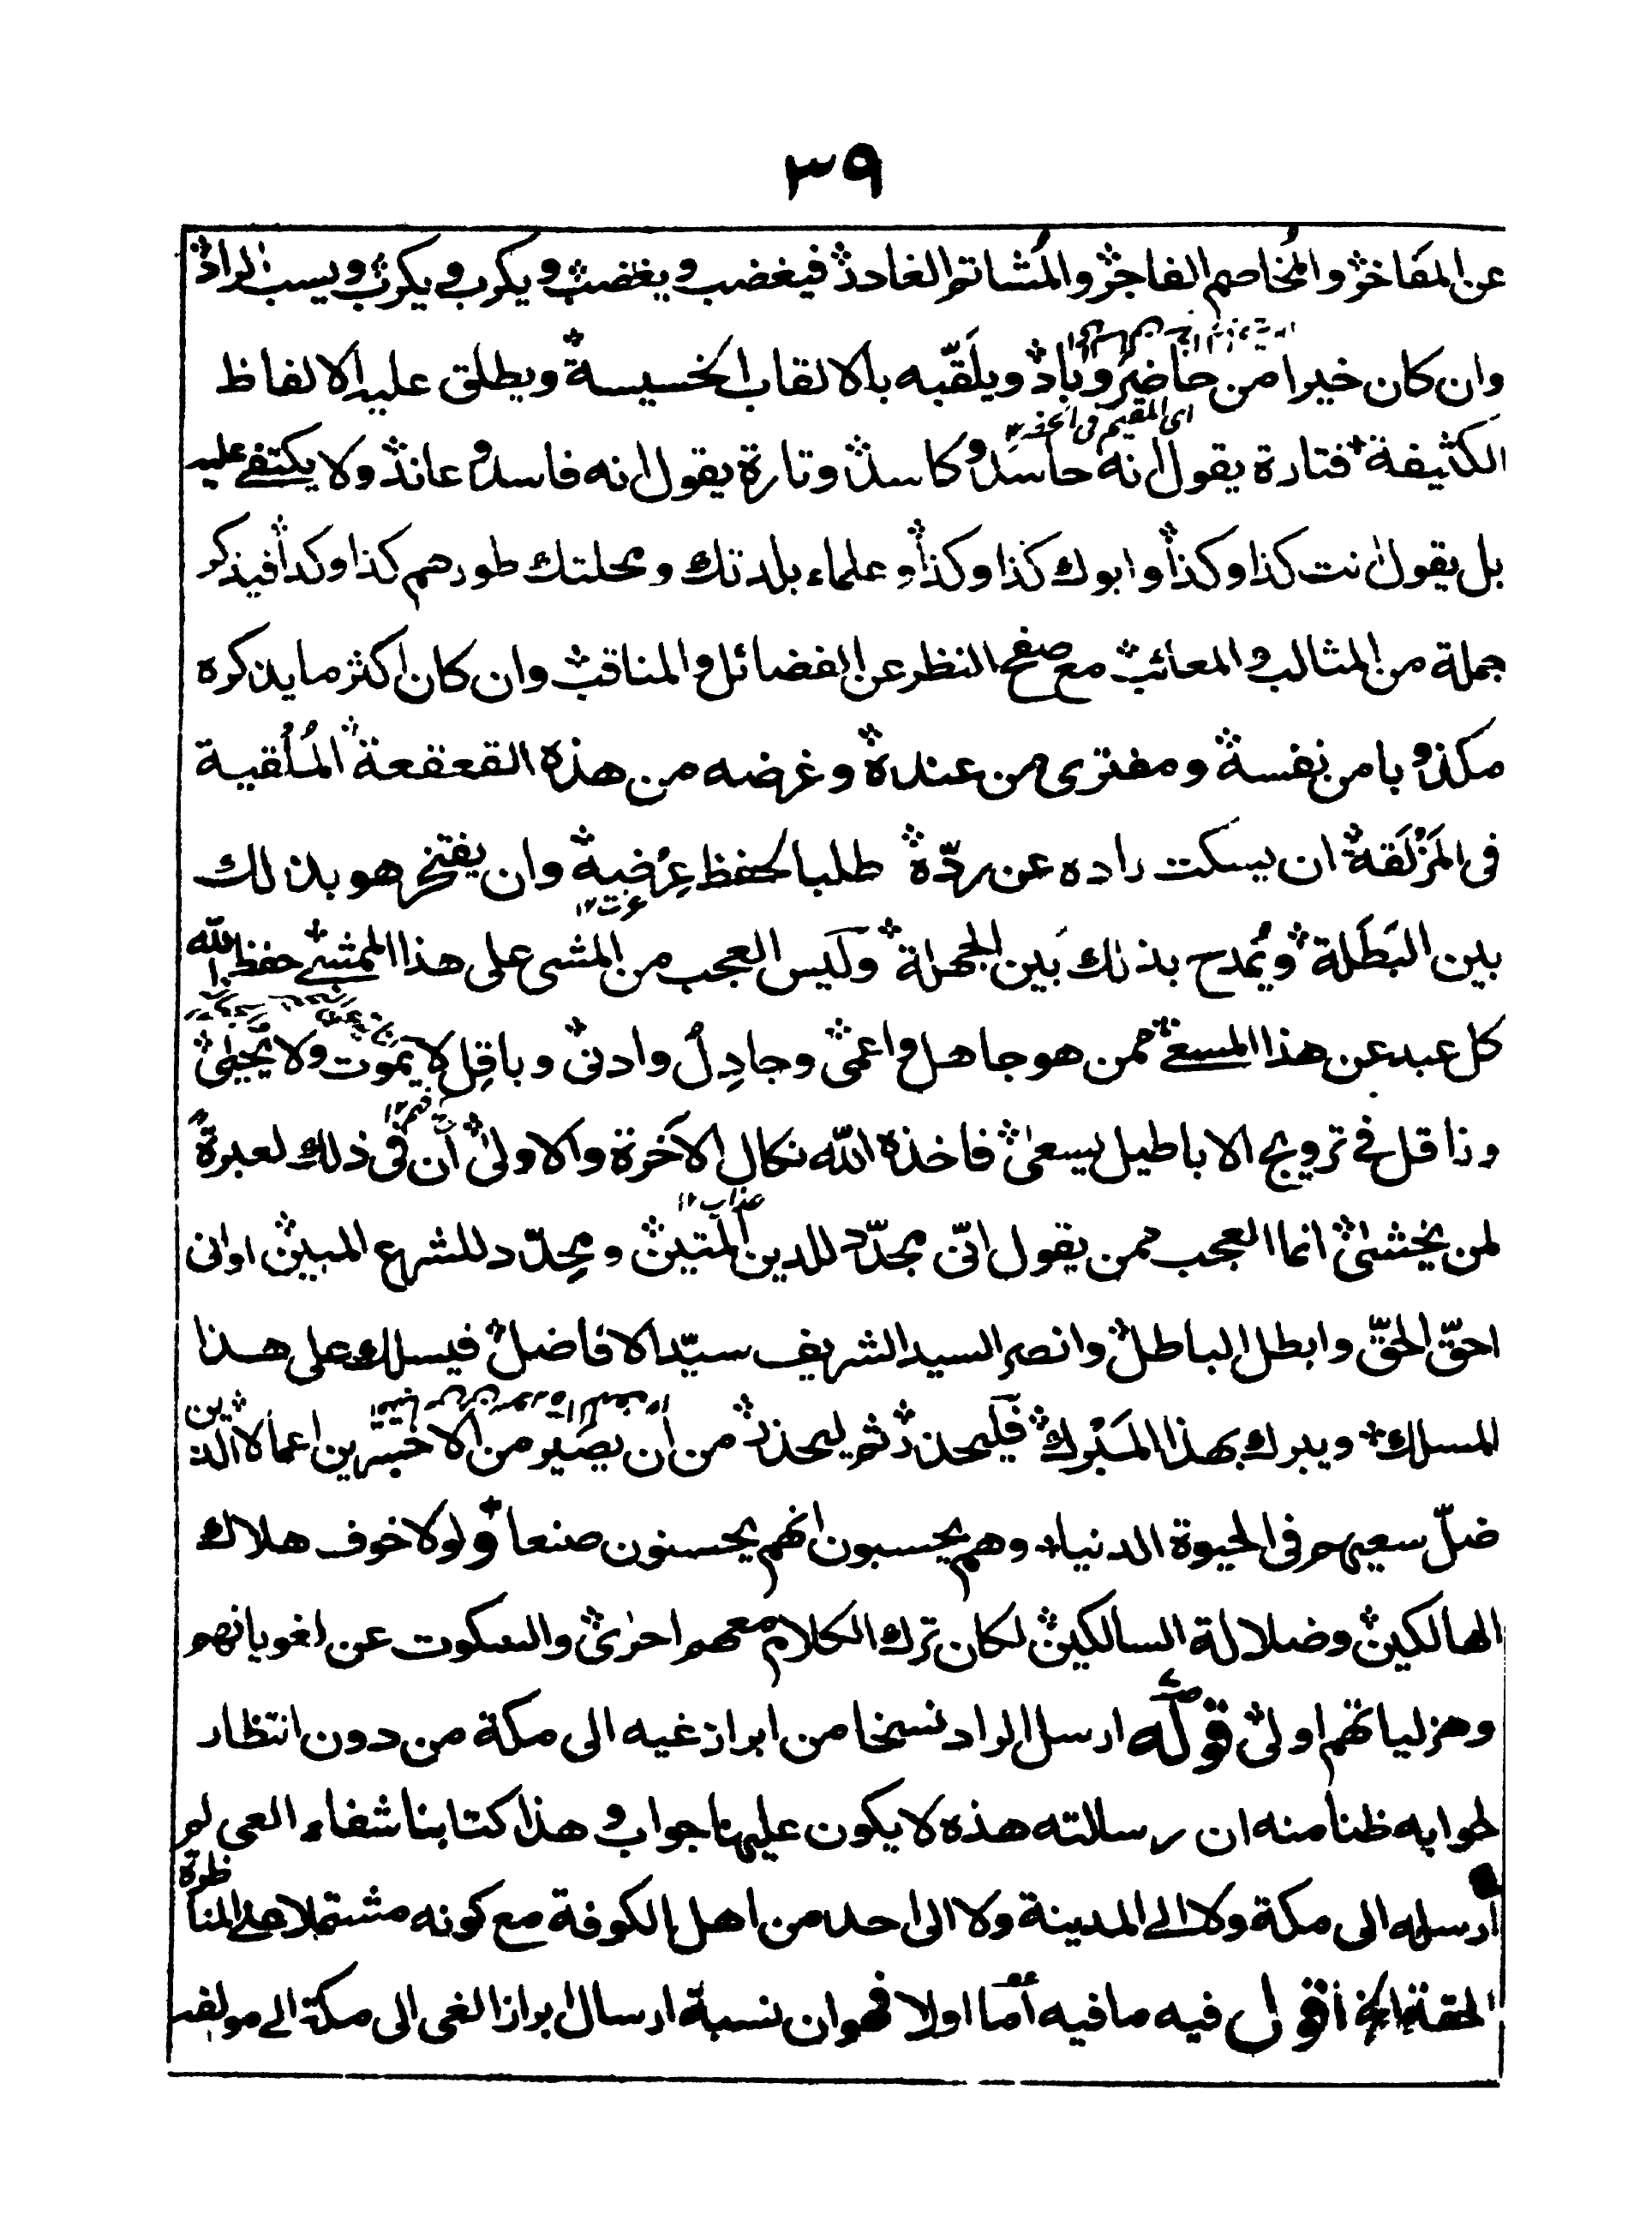 ٣٩
عن المفاخر والمُخاصم الفاجر والمُشاتم الغادر فيغضب ويغضب ويكرب ويكرب ويسب الراد
وان كان خيرا من حاضر وباد ويلقّبه بالالقاب الخسيسة ويطلق عليه الالفاظ
اى المقيم فى الحضر ١٢
الكثيفة فتارة يقول انه حاسد وكاسد وتارة يقول انه فاسد وعاند ولا يكتفى عليه
بل يقول انت كذا وكذا وابوك كذا وكذا وعلماء بلدتك ومحلتك طورهم كذا وكذا فيذكر
جملة من المثالب والمعائب مع صفح النظر عن الفضائل والمناقب وان كان اكثر ما يذكره
مكذوبا من نفسة ومفترى من عندة وغرضه من هذه القعقعة المُلْقية
فى المَزْلَقة ان يسكت راده عن ردّة طلبا لحفظ عِرْضية وان يفتخر هو بذلك
عزت ١٢
بين البَطَلة ويُمدح بذلك بَين الجهلة وَليس العجب من المشى على هذا الممشے حفظ الله
كل عبد عن هذا المسعے ممن هو جاهل واعمى وجادِلُ وادنى وباقِل لا يموت ولا يحيىٰ
وناقل فى ترويج الاباطيل يسعىٰ فاخذه الله نكال الآخرة والاولىٰ ان فى ذلك لعبرة
عذاب ١٢
لمن يخشىٰ انما العجب ممن يقول انّى مجدّد للدين المتين ومحِدّد للشرع المبين او انى
احقّ الحقّ وابطل الباطل وانصر السيد الشريف سيّد الافاضل فيسلك على هذا
المسلك ويبرك بهذا المَبْرك فَليحذر ثم ليحذر من ان يصير من الاخسرين اعمالا الذين
ضلّ سعيهم فى الحيوة الدنيا وهم يحسبون انهم يحسنون صنعا ولولا خوف هلاك
الهالكين وضلالة السالكين لكان ترك الكلام معهم احرىٰ والسكوت عن اغوياتهم
وهزلياتهم اولىٰ قوله ارسل الراد نسخا من ابراز غيه الى مكة من دون انتظار
لجوابه ظنا منه ان رسالته هذه لا يكون عليها جواب وهذا كتابنا شفاء العى لم
ارسله الى مكة ولا الے المدينة ولا الى احد من اهل الكوفة مع كونه مشتملا على المناظرة
الحقة الخ اقول فيه ما فيه اما اولا فهو ان نسبة ارسال ابراز الغى الى مكة الے مولفه